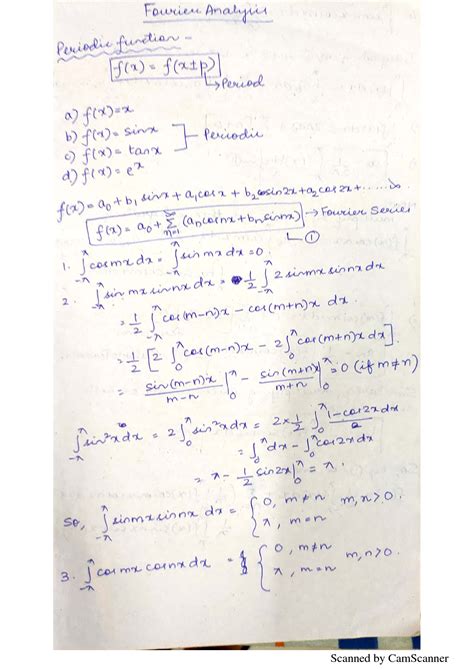 Fourier Analysis
Periodic function -
f(x) = f(x±p)
↳ Period
a) f(x)=x
b) f(x) = sinx
c) f(x) = tanx
— Periodic
d) f(x) = e^x
f(x) = a₀ + b₁ sinx + a₁ cosx + b₂ sin2x + a₂ cos2x + ......∞
f(x) = a₀ + ∑_{n=1}^{∞} (aₙcosnx + bₙsinnx) → Fourier Series
↳ ①
1. ∫_{-π}^{π} cosmx dx = ∫_{-π}^{π} sinmx dx = 0.
2. ∫_{-π}^{π} sinmx sinnx dx = 1/2 ∫_{-π}^{π} 2 sinmx sinnx dx
= 1/2 ∫_{-π}^{π} cos(m-n)x - cos(m+n)x dx
= 1/2 [2 ∫_0^π cos(m-n)x - 2 ∫_0^π cos(m+n)x dx]
= sin(m-n)x/(m-n) |_0^π - sin(m+n)x/(m+n) |_0^π = 0 (if m≠n)
∫_{-π}^{π} sin²x dx = 2 ∫_0^π sin²x dx = 2×1/2 ∫_0^π (1-cos2x dx)/2
= ∫_0^π dx - ∫_0^π cos2x dx
= π - 1/2 sin2x |_0^π = π.
So, ∫_{-π}^{π} sinmx sinnx dx = { 0, m≠n m,n>0.
π, m=n
3. ∫_{-π}^{π} cosmx cosnx dx = { 0, m≠n m,n>0.
π, m=n
Scanned by CamScanner